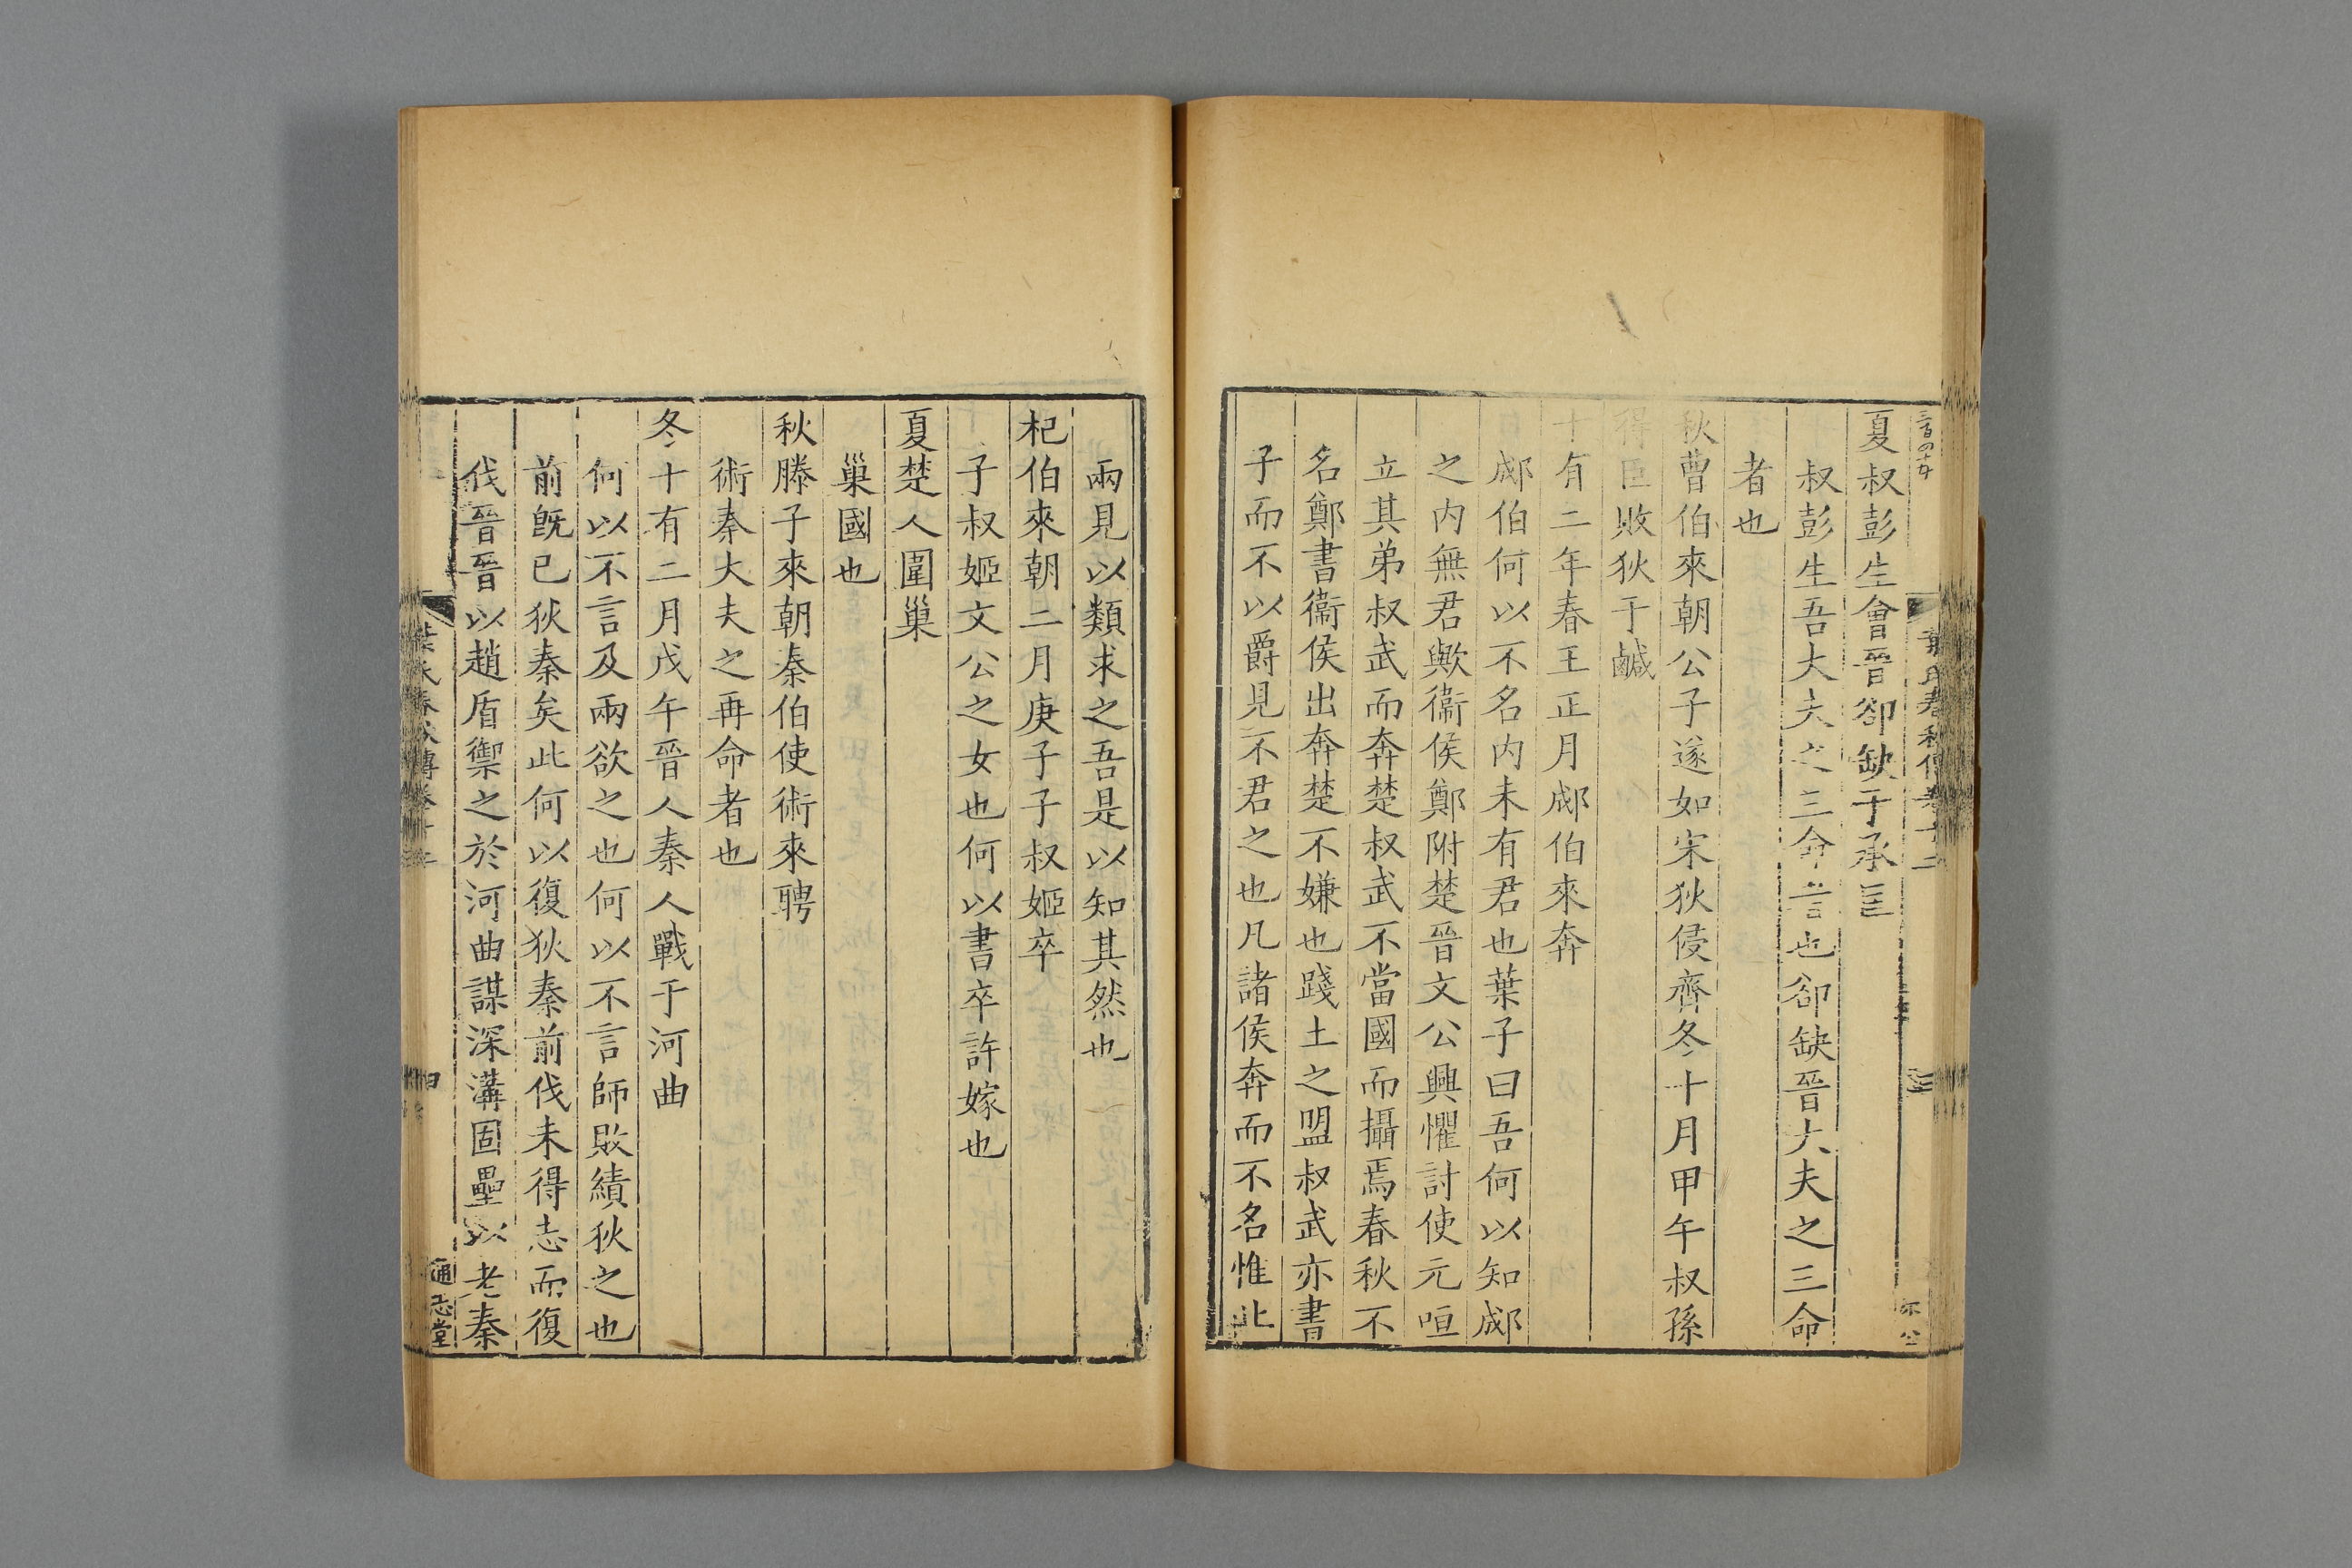 夏叔彭生會晉卻缺于承匡
叔彭生吾大夫之三命者也卻缺晉大夫之三命
者也
秋曹伯來朝公子遂如宋狄侵齊冬十月甲午叔孫
得臣敗狄于鹹
十有二年春王正月郕伯來奔
郕伯何以不名內未有君也葉子曰吾何以知郕
之內無君歟衞侯鄭附楚晉文公興懼討使元咺
立其弟叔武而奔楚叔武不當國而攝焉春秋不
名鄭書衞侯出奔楚不嫌也踐土之盟叔武亦書
子而不以爵見不君之也凡諸侯奔而不名惟此
兩見以類求之吾是以知其然也
杞伯來朝二月庚子子叔姬卒
子叔姬文公之女也何以書卒許嫁也
夏楚人圍巢
巢國也
秋滕子來朝秦伯使術來聘
術秦大夫之再命者也
冬十有二月戊午晉人秦人戰于河曲
何以不言及兩欲之也何以不言師敗績狄之也
前旣已狄秦矣此何以復狄秦前伐未得志而復
伐晉晉以趙盾禦之於河曲謀深溝固壘以老秦
通志堂